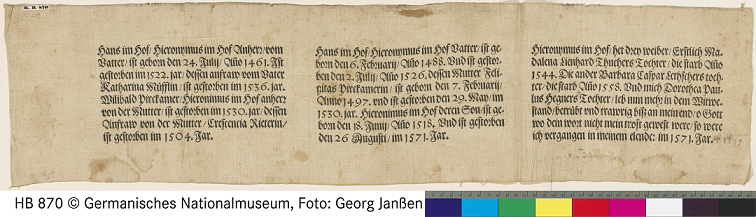 H. B. 870
Hans im Hof/ Hieronymus im Hof Anherr/ vom
Vatter/ ist geborn den 24. Julij/ Año 1461. Ist
gestorben im 1522. jar/ dessen anfraw vom Vater
Katharina Müfflin/ ist gestorben im 1536. jar.
Wilibald Pirckamer Hieronimus im Hof anherr
von der Mutter/ ist gestorben im 1530. jar/ dessen
Anfraw von der Mutter/ Crescencia Rieterin/
ist gestorben im 1504. Jar.
Hans im Hof/ Hieronymus im Hof Vatter/ ist ge-
born den 6. Februarij/ Año 1488. Vnd ist gestor-
ben den 2. Julij/ Año 1526. dessen Mutter Feli-
citas Pirckamerin/ ist geborn den 7. Februarij/
Anno 1497. vnd ist gestorben den 29. May/ im
1530. jar. Hieronimus im Hof deren Son ist ge-
born den 18. Junij/ Año 1518. Vnd ist gestorben
den 26 Augusti/ im 1571. Jar.
Hieronymus im Hof/ her drey weiber/ Erstlich Ma-
dalena Lienhard Thuchers Tochter/ die starb Año
1544. Die ander Barbara Caspar Lethschers toch-
ter/ die starb Año 1558. Vnd mich Dorothea Pau-
lus Hegners Tochter/ leb nun mehr in dem Witwe-
stand/ betrübt vnd trawrig biß an mein end/ o Gott
wo dein wort nicht mein trost gewest were/ so were
ich vergangen in meinem elende: im 1571. Jar.
HB 870 © Germanisches Nationalmuseum, Foto: Georg Janßen